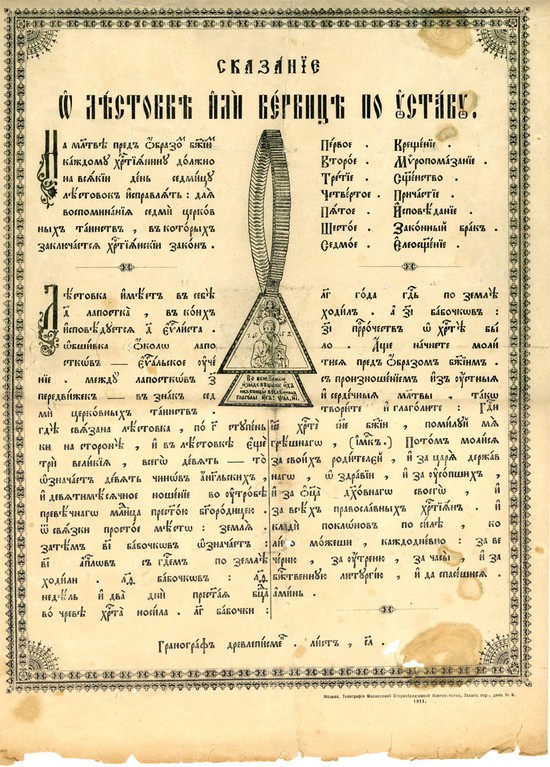 СКАЗА́НЇЕ
Ѡ҆ ЛѢ́СТОВКѢ И҆́ЛИ ВЕ́РВИЦѢ ПО ᲂУ҆СТА́ВꙊ.
На мл҃твѣ предъ Ѻ҆бразоⷨ бж҃їиⷨ
каждомꙋ хрⷭ҇тїѧнинꙋ должно
на всѧкїи день седмицꙋ
лѣстовокъ и҆справлѧть : длѧ
воспоминанїѧ седми церков
ныхъ таинствъ , въ которыхъ
заключаетсѧ хрⷭ҇тїѧнскїи законъ .
Пе́рвое . Креще́нїе .
Второ́е . Мѵропома́занїе .
Тре́тїе . Сщ҃е́нство .
Четве́ртое . Прича́стїе .
Пѧ́тое . И҆сповѣ́данїе .
Шесто́е . Зако́нный бра́къ .
Седмо́е . Є҆леосщ҃е́нїе .
Лѣ́стовка и҆мѣетъ въ себѣ
д҃ лапостка̀ , въ ко́ихъ
и҆сповѣдуетсѧ д҃ є҆ѵⷢ҇листа .
Ѡ҆бшивка ѻ҆коло лапо
сткѡвъ — є҆ѵⷢ҇льское ᲂу҆че
нїе . между лапосткѡвъ з҃
передвижекъ — въ знакъ сед
ми церковныхъ таинствъ .
гдѣ связана лѣстовка , по г҃ ступень
ки на сторонѣ , и҆ въ лѣстовкѣ є҆щѐ
три великїѧ , всегѡ̀ девѧть — то̀
ѡ҆значаетъ девѧть чинѡвъ а҆нг҃льскихъ ,
и҆ девѧтимѣсѧчное ношенїе во ᲂу҆тробѣ
превѣчнагѡ млⷣнца прест҃ою бг҃ородицею .
ѿ свѧзки простое мѣсто : землѧ .
затѣмъ в҃і бабочковъ ѡ҆значаетъ :
в҃і а҆пⷭ҇лѡвъ съ гдⷭ҇емъ по землѣ
ходили . л҃д бабочковъ : л҃д
недѣль и҆ два̀ дни прест҃аѧ бц҃а
во чревѣ хрⷭ҇та̀ носила . л҃г бабочки :
л҃г года гдⷭ҇ь по землѣ
ходилъ . а҆ з҃і бабочковъ :
з҃і прⷪ҇рочествъ ѡ҆ хрⷭ҇тѣ̀ бы
ло . А҆ще начнете моли
тисѧ пред Ѻ҆бразомъ бж҃їимъ
съ произношенїемъ и҆зъ ᲂу҆стныѧ
и҆ сердечныѧ мл҃твы : такѡ
творите и҆ глаголите : Гдⷭ҇и
і҆с҃е хрⷭ҇тѐ сн҃е бж҃їи , помилꙋй мѧ
грѣшнагѡ , (и҆мⷦ҇ъ.) Потомъ молисѧ
за своихъ родителей , и҆ за царѧ̀ держав
нагѡ , ѡ҆ здравїи , и҆ за ᲂу҆сопших ,
и҆ за ѻ҆ц҃а̀ дх҃овнагѡ своегѡ̀ , и҆
за всѣхъ православныхъ хрⷭ҇тїѧнъ . и҆
клади поклоновъ по силѣ , ко
лико можеши , каждодневно : за ве
че́рню , за ᲂу҆треню , за часы̀ , и҆ за
бжⷭ҇твенную литꙋргїю , и҆ да спасешисѧ .
а҆минь .
Гранографъ древлеписмеⷩ҇ листъ ,
Москва. Типографія Московской Старообрядческой
1911.